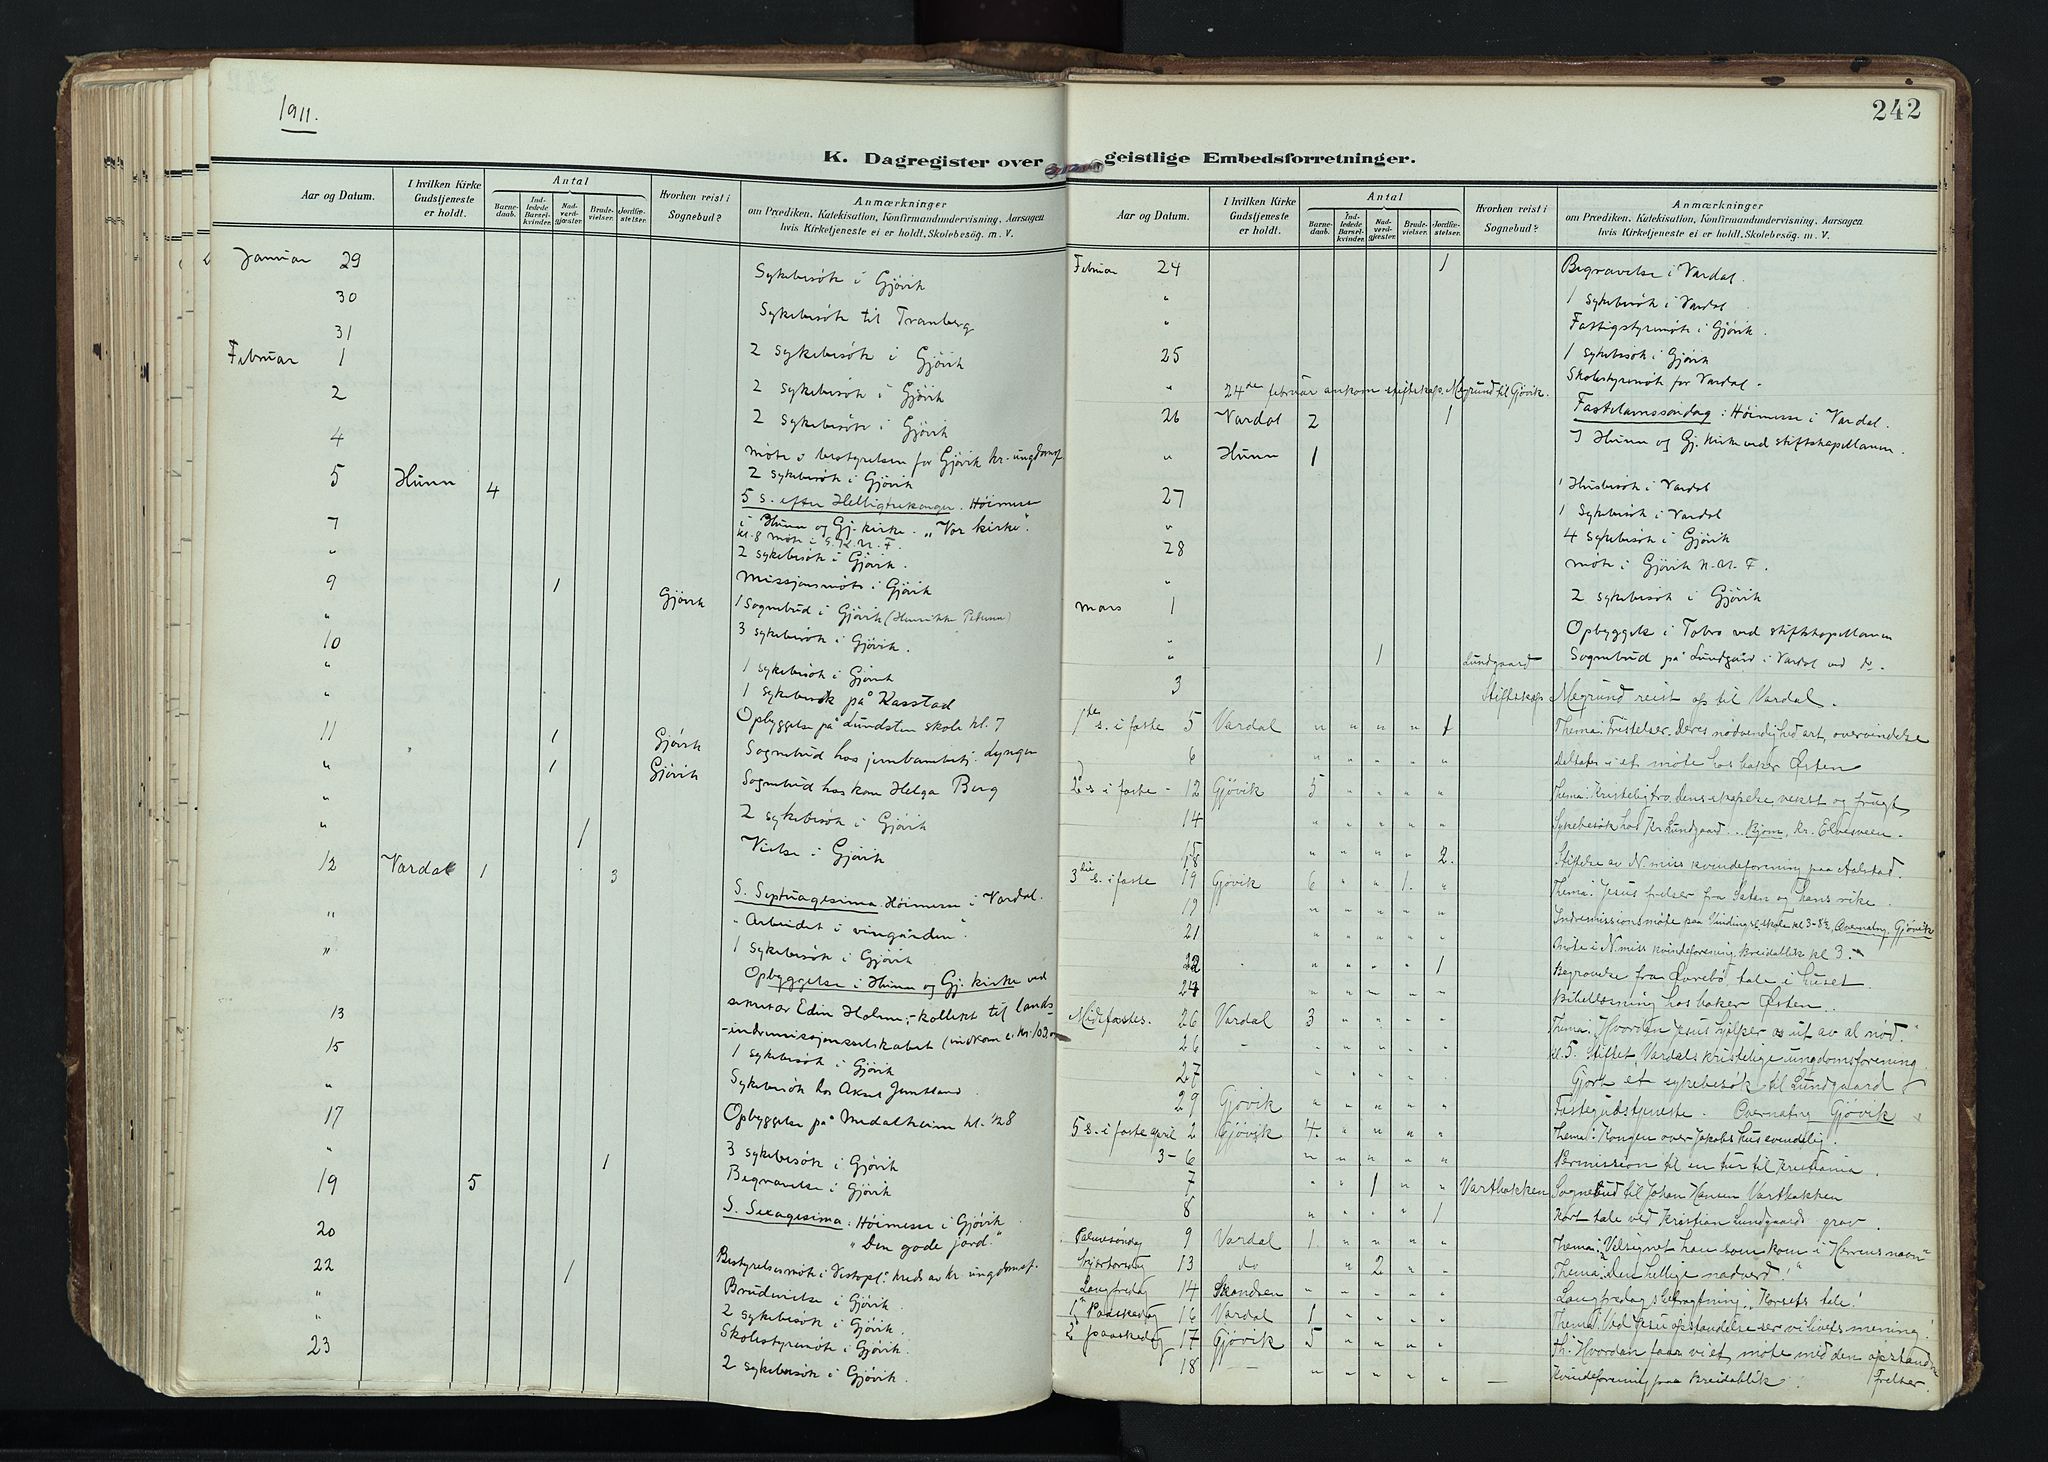 1911.
242
K. Dagregister over geistlige Embedsforretninger.
Aar og Datum.
I hvilken Kirke Gudstjeneste er holdt.
Antal
Barnedaab.
Indledede Barselkvinder.
Nadverdgjæster.
Brudevielser.
Jordfæstelser.
Hvorhen reist i Sognebud?
Anmærkninger
om Prædiken, Katekisation, Konfirmandundervisning, Aarsagen
hvis Kirketjeneste ei er holdt, Skolebesög. m. V.
Januar 29 Sykebesök i Gjövik
30 Sykebesök til Tranberg
31 2 sykebesök i Gjövik
Februar 1 2 sykebesök i Gjövik
2 2 sykebesök i Gjövik
4 möte i bestyrelsen for Gjövik kr. ungdomsf.
2 sykebesök i Gjövik
5 Hunn 4 5 s. efter Helligtrekonger. Höimesse
i Hunn og Gj. kirke. "Vor kirke".
kl. 8 möte i G. K. U. F.
7 2 sykebesök i Gjövik.
" Missjonsmöte i Gjövik
9 1 Gjövik 1 Sognebud i Gjövik (Henrikke Petersen)
" 3 sykebesök i Gjövik.
10 1 sykebesök i Gjövik
" 1 sykebesök på Kasstad
" Opbyggelse på Lundsten skole kl. 7
11 1 Gjövik Sognebud hos jernbanebetj. Lyngen
" 1 Gjövik Sognebud hos kone Helga Berg
" 2 sykebesök i Gjövik
" 1 Vielse i Gjövik
12 Vardal 1 3 S. Septuagesima. Höimesse i Vardal.
"Arbeidet i vingården".
" 1 sykebesök i Gjövik
" Opbyggelse i Hunn og Gj. kirke ved
sekretær Edin Holme; - kollekt til lands-
-indremissjonsselskabet (indkom c. kr. 103,00
13 1 sykebesök i Gjövik
15 Sykebesök hos Aksel Juntland
" Opbyggelse på Nedalheim kl. 1/2 8
17 3 sykebesök i Gjövik
" 1 Begravelse i Gjövik
19 5 S. Sexagesima: Höimesse i Gjövik
"Den gode jord."
20 Bestyrelsesmöte i Vestopl. kreds av kr. ungdomsf.
22 1 Brudevielse i Gjövik
" 2 sykebesök i Gjövik.
" Skolestyremöte i Gjövik.
23 2 sykebesök i Gjövik.
Aar og Datum.
I hvilken Kirke Gudstjeneste er holdt.
Antal
Barnedaab.
Indledede Barselkvinder.
Nadverdgjæster.
Brudevielser.
Jordfæstelser.
Hvorhen reist i Sognebud?
Anmærkninger
om Prædiken, Katekisation, Konfirmandundervisning, Aarsagen
hvis Kirketjeneste ei er holdt, Skolebesög. m. V.
Februar 24 1 Begravelse i Vardal.
" 1 sykebesök i Vardal
" Fattigstyremöte i Gjövik.
25 1 sykebesök i Gjövik
Skolestyremöte for Vardal.
" 24de februar ankom stiftskap. Megrund til Gjövik.
26 Vardal 2 1 Fastelavnssöndag: Höimesse i Vardal.
" Hunn 1 I Hunn og Gj. kirke ved stiftskapellanen.
27 1 Husbesök i Vardal
" 1 Sykebesök i Vardal
28 4 sykebesök i Gjövik
" möte i Gjövik K. U. F.
Mars 1 2 sykebesök i Gjövik
" Opbyggelse i Tobro ved stiftskapellanen
" 1 Lundgaard Sognebud på Lundgård i Vardal ved do.
3 Stiftskap. Megrund reist op til Vardal.
1ste s. i faste 5 Vardal " " " " 1 Thema: Fristelser. Deres nødvendighed art, overvindelse
6 " " " " " Deltaket i et möte hos baker Østen
2. s. i faste - 12 Gjøvik 5 " " " " Thema: Kristelig tro, dens skapelse vekst og frugt
14 " " " " " Sykebesøk hos Kr. Lundgaard . Bjørn, kr. Elvesveen.
15
18 " " " " 2. Stiftelse av N. miss kvindeforening paa Aalstad.
3die s. i faste 19 Gjøvik 6 " " 1. " Thema: Jesus frelser fra Satan og hans rike.
19 " " " " " Indremissionsmøte paa Vindings. skole kl 3-8½. Overnatng. Gjøvik
21 " " " " " Møte i N. miss kvindeforening Breidablik kl 3.
22 " " " " 1 Begravelse fra Løvebö, tale i huset.
24 " " " " " Bibellæsning hos baker Østen.
Midfastes. 26 Vardal 3 " " " " Thema: Hvordan Jesus hjælper os ut av al nød.
26 " " " " " kl. 5. Stiftet Vardals kristelige ungdomsforening.
27 " " " " " Gjort et sykebesøk til Lundgaard
29 Gjøvik " " " " " Fastegudstjeneste. Overnatng Gjøvik
5 s. i faste april 2 Gjøvik 4. " " " " Thema: Kongen over Jakobs hus evindelig.
3-6 " " " " " Permission til en tur til Kristiania.
7 " " 1 " " Vartbakken Sognebud til Johan Hansen Vartbakken
8 " " " " 1 Kort tale ved Kristian Lundgaards grav.
Palmesøndag 9 Vardal 1. " " " " Thema: "Velsignet han som kom i Herrens navn"
Skjærtorsdag 13 do " 2 " " Thema: "Den hellige nadverd!"
Langfredag 14 Skonsen " " " " " Langfredagsbetragtning: "Korsets tale!
1. Paaskedag 16 Vardal 1 " " " " Thema: Ved Jesu opstandelse ser vi livets mening!
2. paaskedag 17 Gjøvik 5 " " " " Th: Hvordan faar vi et møte med den opstandne
18 " " " " " Kvindeforening paa Breidablik. Frelser.